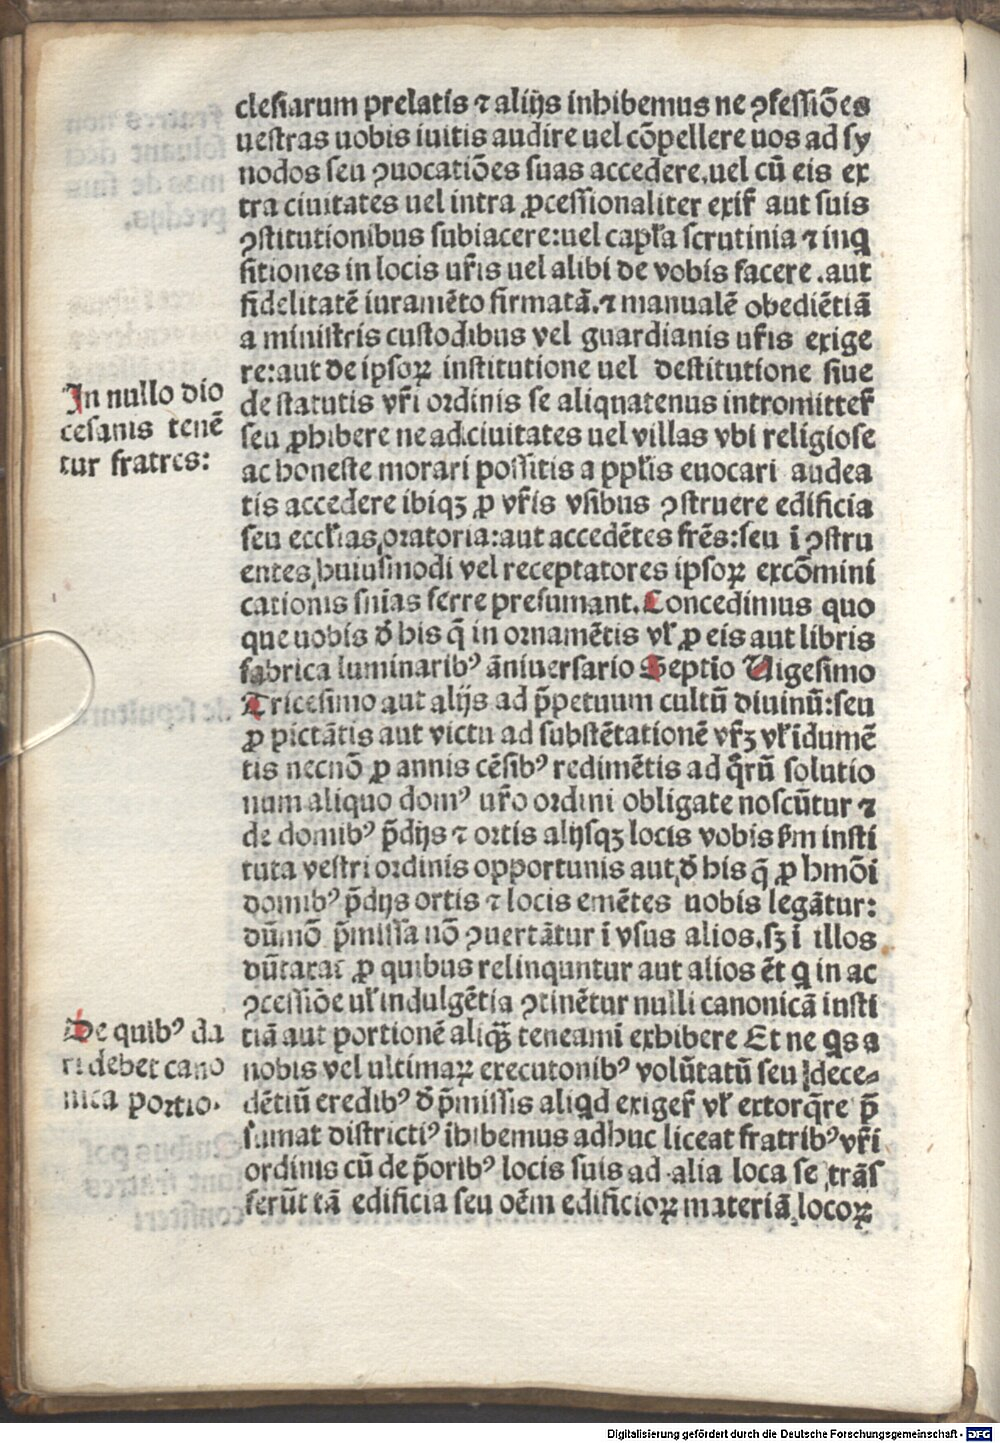 clesiarum prelatis ⁊ alijs inhibemus ne ꝯfessiōes
uestras uobis iuitis audire uel cōpellere uos ad sy
nodos seu ꝯuocatiōes suas accedere.uel cū eis ex
tra ciuitates uel intra ꝓcessionaliter exir̄ aut suis
ꝯstitutionibus subiacere:uel capl̄a scrutinia ⁊ inq
sitiones in locis ur̄is uel alibi de vobis facere .aut
fidelitatē iuramēto firmatā.⁊ manualē obediētiā
a ministris custodibus vel guardianis ur̄is exige
re:aut de ipsoꝝ institutione uel destitutione siue
de statutis vr̄i ordinis se aliquatenus intromitter̄
In nullo dio
cesanis tenē
tur fratres:
seu ꝓhibere ne ad.ciuitates uel villas vbi religiose
ac honeste morari possitis a ppl̄is euocari audea
tis accedere ibiqꝫ ꝓ vr̄is vsibus ꝯstruere edificia
seu eccl̄ias,oratoria:aut accedētes fr̄es:seu ī ꝯstru
entes,huiusmodi vel receptatores ipsoꝝ excōmini
cationis snias ferre presumant.Concedimus quo
que uobis ꝺ̄ his q̄ in ornamētis vl̄ ꝓ eis aut libris
fabrica luminaribꝰ āniuersario Septīo Uigesimo
Tricesimo aut alijs ad p̄petuum cultū diuinū:seu
ꝓ pictātis aut victu ad substētationē vr̄ꝫ vl̄ idumē
tis necnō ꝓ annis cēsibꝰ redimētis ad q̄rū solutio
num aliquo domꝰ ur̄o ordini obligate noscūtur ⁊
de domibꝰ p̄dijs ⁊ ortis alijsqꝫ locis vobis ẜm insti
tuta vestri ordinis opportunis aut,ꝺ̄ his q̄ ꝓ hmōi
domibꝰ p̄dijs ortis ⁊ locis emētes uobis legātur:
dūmō p̄missa nō ꝯuertātur ī vsus alios.sꝫ ī illos
dūtaxat ꝓ quibus relinquntur aut alios ēt q in ac
ꝯcessiōe ul̄ indulgētia ꝯtinētur nulli canonicā insti
De quibꝰ da
ri debet cano
nica portio.
tiā aut portionē aliqꝫ teneami exhibere Et ne qs a
nobis vel ultimaꝝ executonibꝰ volūtatū seu dece⸗
dētiū eredibꝰ ꝺ̄ p̄missis aliqd exiger̄ vl̄ extorq̄re p̄
sumat districtiꝰ ihibemus adhuc liceat fratribꝰ vr̄i
ordinis cū de p̄oribꝰ locis suis ad alia loca se trās
ferūt tā edificia seu oēm edificioꝝ materiā,locoꝝ
Digitalisierung gefördert durch die Deutsche Forschungsgemeinschaft - DFG